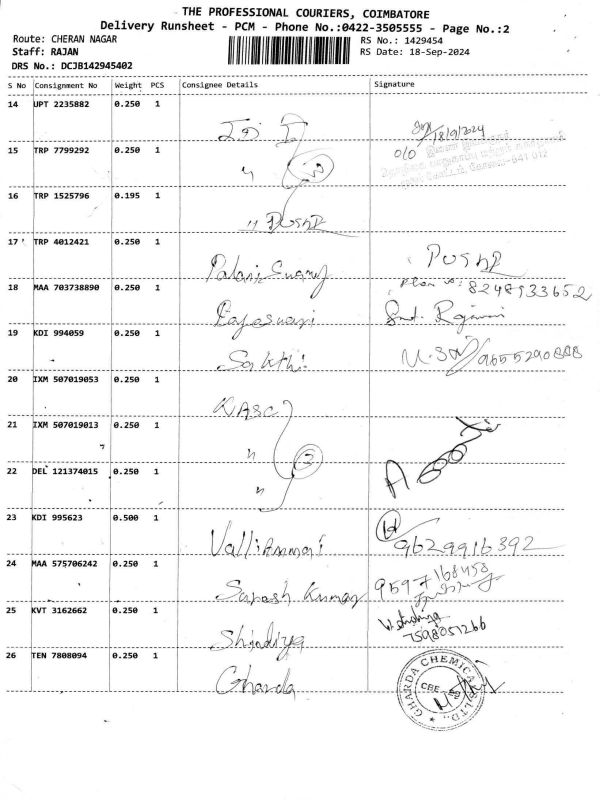 THE PROFESSIONAL COURIERS, COIMBATORE
Delivery Runsheet - PCM - Phone No.:0422-3505555 - Page No.:2
Route: CHERAN NAGAR
RS No.: 1429454
Staff: RAJAN
RS Date: 18-Sep-2024
DRS No.: DCJB142945402
S No Consignment No Weight PCS Consignee Details Signature
14 UPT 2235882 0.250 1
18/9/2024
15 TRP 7799292 0.250 1 " 3
O/O
641 012
16 TRP 1525796 0.195 1 " PUSHP
17 TRP 4012421 0.250 1 Palani Swamy PUSHP
18 MAA 703738890 0.250 1 Rajeswari 8248933652
19 KDI 994059 0.250 1 Sakthi 9655290888
20 IXM 507019053 0.250 1 KASC
21 IXM 507019013 0.250 1 " 3
22 DEL 121374015 0.250 1 "
23 KDI 995623 0.500 1 Valliammai 9629916392
24 MAA 575706242 0.250 1 Suresh Kumar 9597168458
25 KVT 3162662 0.250 1 7598051266
26 TEN 7808094 0.250 1 Gharda
GHARDA CHEMICALS LTD.,
CBE